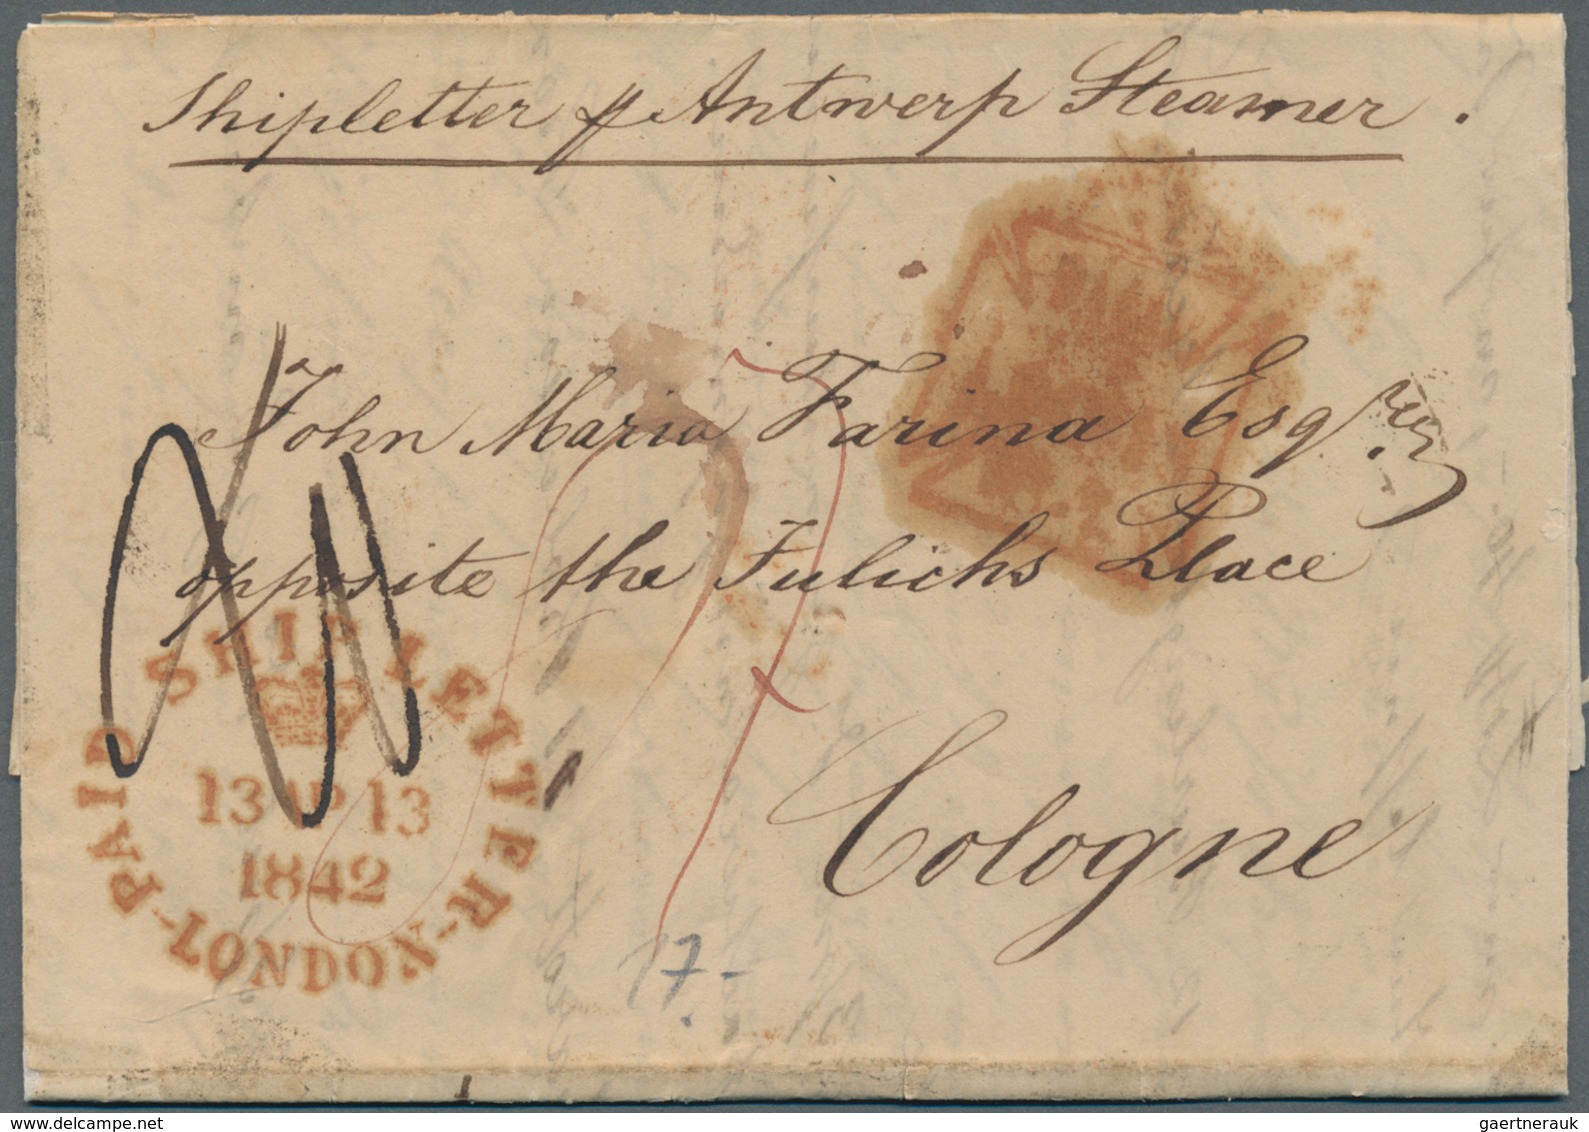 Shipletter p Antwerp Steamer.
John Maria Farina Esq.
opposite the Julichs Place
Cologne
PAID SHIP LETTER
13 AP 13
1842
-LONDON-
17.-
gaertnerauk / www.delcampe.net